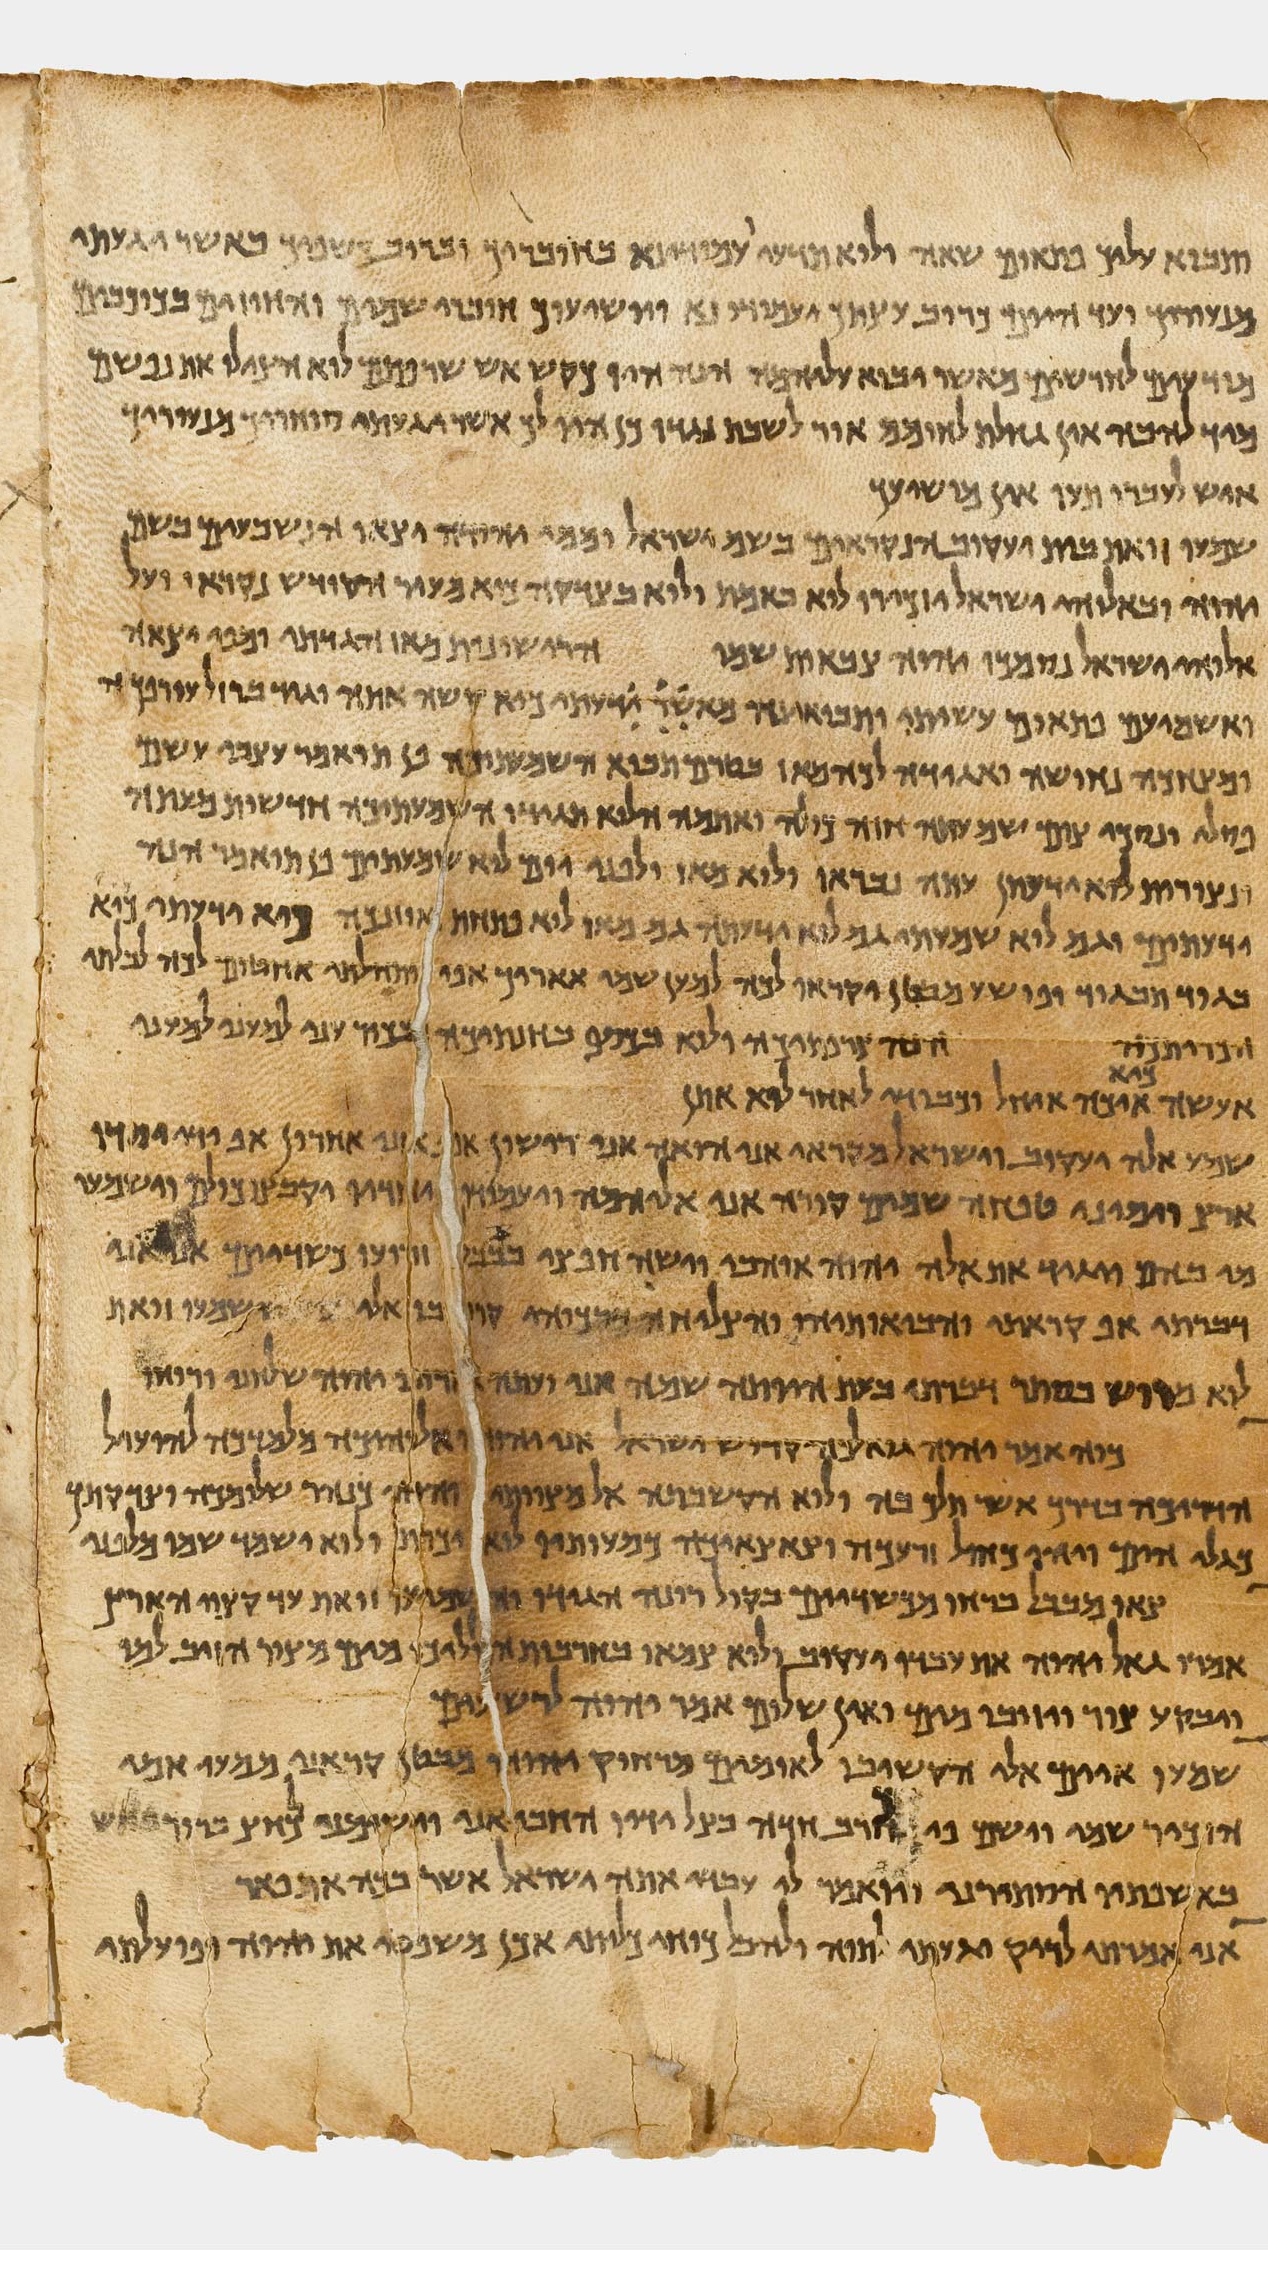 ותבוא עליך פתאום שאוה ולוא תדעי עמודי נא בחובריך וברוב כשפיך כאשר יגעתי
מנעוריך ועד היום כרוב עצתך יעמודו נא ויושיעוך חוברי שמים והחוזים בכוכבים
מודיעים לחודשים מאשר יבוא עליהמה הנה היו כקש אש שרפתם לוא הצילו את נפשם
מיד להבה אין גחלת לחומם אור לשבת נגדו כן היו לך אשר יגעתי סוחריך מנעוריך
איש לעברו תעו אין מושיעך
שמעו זואת בית יעקוב הנקראים בשם ישראל וממי יהודה יצאו הנשבעים בשם
יהוה ובאלוהי ישראל יזכירו לוא באמת ולוא בצדקה כיא מעיר הקודש נקראו ועל
אלוהי ישראל נסמכו יהוה צבאות שמו הראישונות מאז הגדתי ומפי יצאה
ואשמיעם פתאום עשיתי ותבואינה מאשר ידעתי כיא קשה אתה וגיד ברזל עורפכה
ומצחכה נחושה ואגידה לכה מאז בטרם תבוא השמעתיכה פן תואמר עצבי עשם
פסלי ונסכי צום שמעתה חזה כולה ואתמה הלוא תגידו השמעתיכה חדשות מעתה
ונצורות לוא ידעתן עתה נבראו ולוא מאז ולפני יום לוא שמעתים פן תואמר הנה
ידעתים וגם לוא שמעתי גם לוא ידעתה גם מאז לוא פתחת אוזנכה כיא ידעתי כיא
בגוד תבגוד ופושע מבטן יקראו לכה למען שמי אאריך אפי ותהלתי אחטום לכה לבלתי
הכריתכה הנה צרפתיכה ולוא בכסף בחנתיכה בכור עוני למעני למעני
אעשה כיא איכה איחל וכבודי לאחר לוא אתן
שמע אלה יעקוב וישראל מקראי אני הואה אני רישון אף אני אחרון אף ידי יסדו
ארץ וימיני טפחה שמים קורה אני אליהמה ויעמודו יחדיו יקבצו כולם וישמעו
מי בהם מגיד את אלה יהוה אוהבי ויעשה חפצי בבבל וזרועו כשדיים אני אני
דברתי אף קראתי והביאותיהו והצליחה דרכוהי קרבו אלי ושמעו זואת
לוא מרוש בסתר דברתי בעת היותה שמה אני ועתה אדוני יהוה שלחני ורוחו
כוה אמר יהוה גואלכה קדוש ישראל אני יהוה אלוהיכה מלמדכה להועיל
הדריכה בדרך אשר תלך בה ולוא הקשבתה אל מצוותי והיה כנהר שלומכה וצדקתך
כגלי הים ויהיו כחול זרעכה וצאצאיכה כמעותיו לוא יכרת ולוא ישמד שמו מלפני
צאו מבבל ברחו מכשדיים בקול רונה הגידו והשמיעו זואת עד קצוי הארץ
אמרו גאל יהוה את עבדו יעקוב ולוא צמאו בחרבות הוליכו מים מצור הזיב למו
ויבקע צור ויזובו מים ואין שלום אמר יהוה לרשעים
שמעו איים אלי הקשיבו לאומים מרחוק יהוה מבטן קראני ממעי אמי
הזכיר שמי וישם פי כחרב חדה בצל ידיו החביאני וישימני כחץ ברור
באשפתיו הסתירני ויואמר לי עבדי אתה ישראל אשר בכה אתפאר
אני אמרתי לריק יגעתי לתוה ולהבל כוחי כליתי אכן משפטי את יהוה ופועלתי